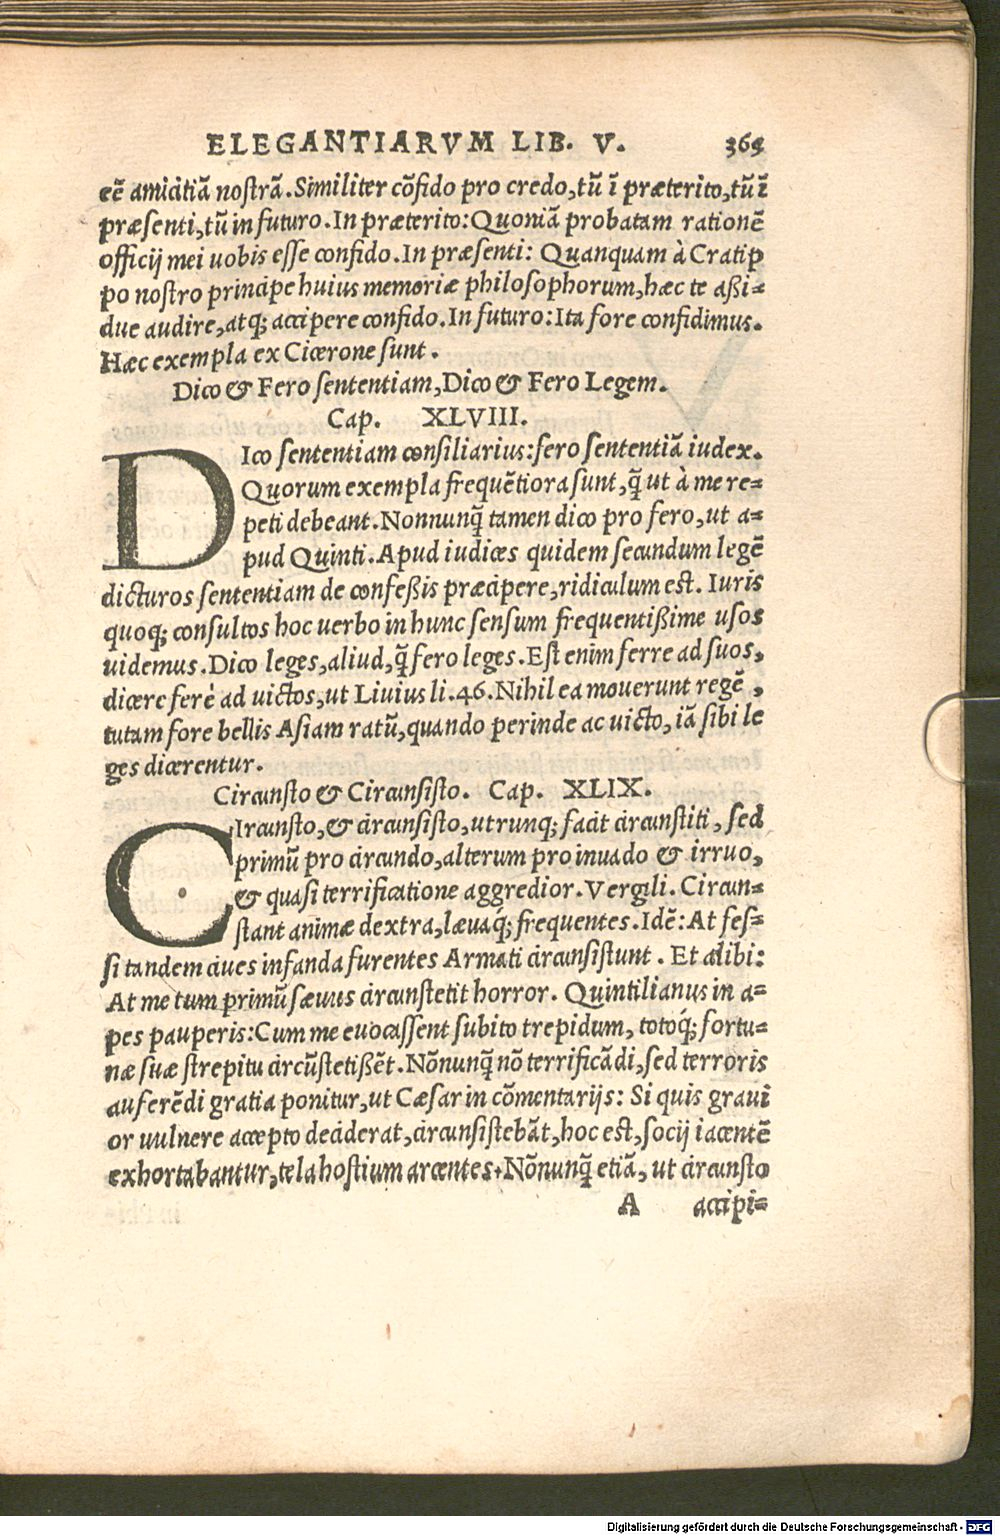 ELEGANTIARVM LIB. V. 369
eē amicitiā nostrā. Similiter cōfido pro credo, tū ī præterito, tū ī
præsenti, tū in futuro. In præterito: Quoniā probatam rationē
officij mei uobis esse confido. In præsenti: Quanquam à Cratip
po nostro principe huius memoriæ philosophorum, hæc te aßi=
due audire, atq; accipere confido. In futuro: Ita fore confidimus.
Hæc exempla ex Cicerone sunt.
Dico & Fero sententiam, Dico & Fero Legem.
Cap. XLVIII.
DIco sententiam consiliarius: fero sententiā iudex.
Quorum exempla frequētiora sunt, q̄ ut à me re=
peti debeant. Nonnunq̄ tamen dico pro fero, ut a=
pud Quinti. Apud iudices quidem secundum legē
dicturos sententiam de confeßis præcipere, ridiculum est. Iuris
quoq; consultos hoc uerbo in hunc sensum frequentißime usos
uidemus. Dico leges, aliud, q̄ fero leges. Est enim ferre ad suos,
dicere ferè ad victos, ut Liuius li. 46. Nihil ea mouerunt regē,
tutam fore bellis Asiam ratū, quando perinde ac victo, iā sibi le
ges dicerentur.
Circunsto & Circunsisto. Cap. XLIX.
CIrcunsto, & circunsisto, utrunq; facit circunstiti, sed
primū pro circundo, alterum pro inuado & irruo,
& quasi terrificatione aggredior. Vergili. Circun=
stant animæ dextra, læuaq́; frequentes. Idē: At fes=
si tandem ciues infanda furentes Armati circunsistunt. Et alibi:
At me tum primū sæuus circunstetit horror. Quintilianus in a=
pes pauperis: Cum me euocassent subito trepidum, totoq́; fortu=
næ suæ strepitu circūstetißēt. Nōnunq̄ nō terrificādi, sed terroris
auferēdi gratia ponitur, ut Cæsar in cōmentarijs: Si quis graui
or uulnere accepto deciderat, circunsistebāt, hoc est, socij iacentē
exhortabantur, tela hostium arcentes. Nōnunq̄ etiā, ut circunsto
A accipi=
Digitalisierung gefördert durch die Deutsche Forschungsgemeinschaft - DFG